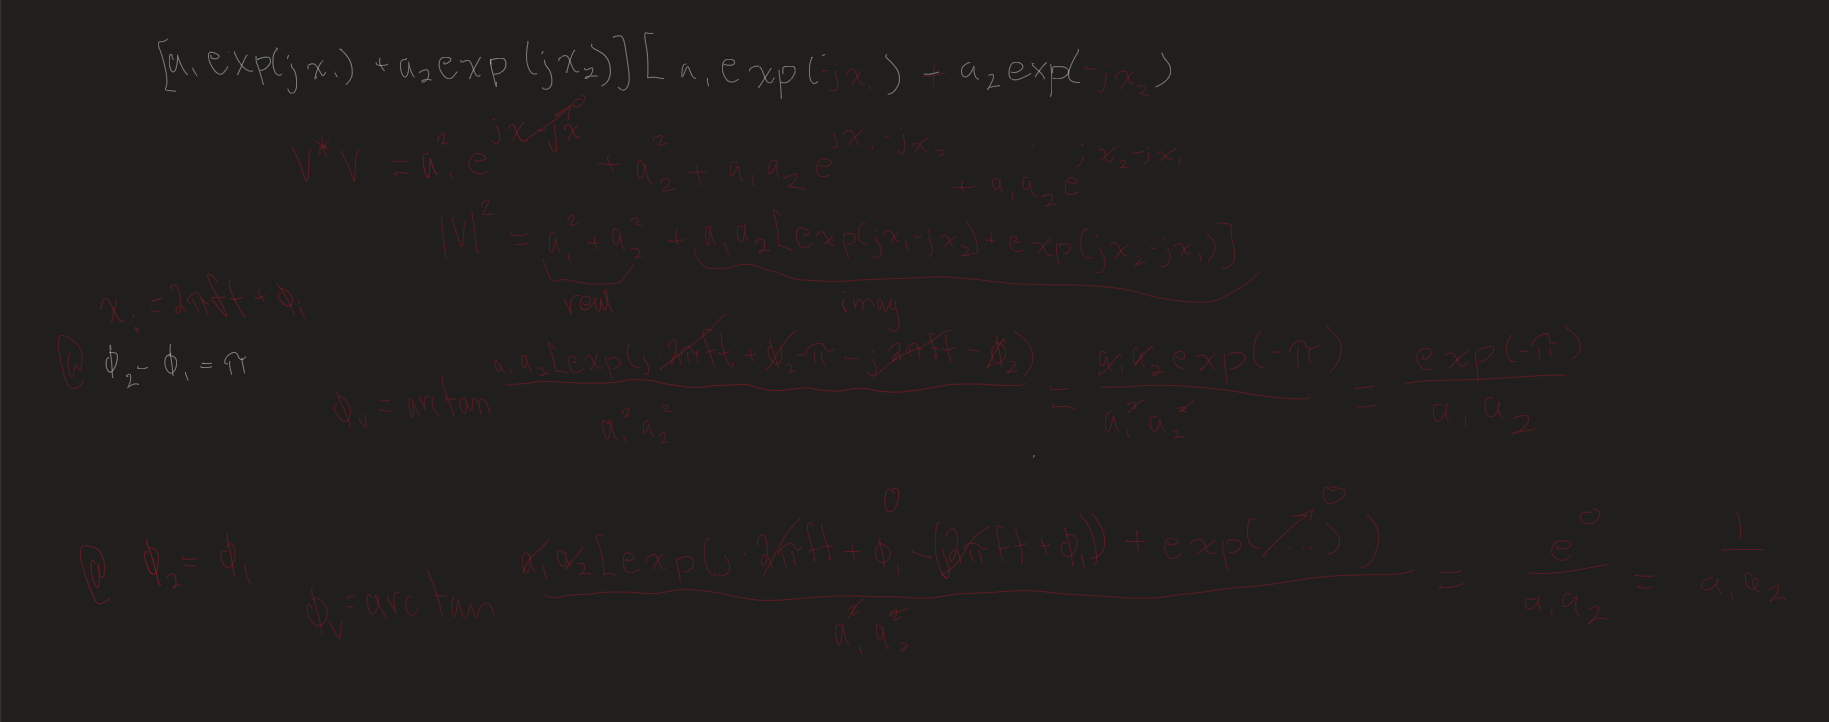 [a₁ exp(jx₁) + a₂ exp(jx₂)][a₁ exp(-jx₁) + a₂ exp(-jx₂)
V*V = a₁² e^(jx-jx) 0 + a₂² + a₁a₂ e^(jx₁-jx₂) + a₁a₂ e^(jx₂-jx₁)
|V|² = a₁² + a₂² + a₁a₂[exp(jx₁-jx₂) + exp(jx₂-jx₁)]
real imag
xᵢ = 2πft + ϕᵢ
@ ϕ₂ - ϕ₁ = π
ϕᵥ = arctan a₁a₂[exp(j 2πft + ϕ₂ - π - j2πft - ϕ₂) / a₁²a₂² = a₁a₂ exp(-π) / a₁²a₂² = exp(-π) / a₁a₂
@ ϕ₂ = ϕ₁
ϕᵥ = arctan a₁a₂[exp(j·2πft + ϕ₁ - (j2πft + ϕ₁)) 0 + exp(....) 0 ) / a₁²a₂² = e⁰ / a₁a₂ = 1 / a₁a₂